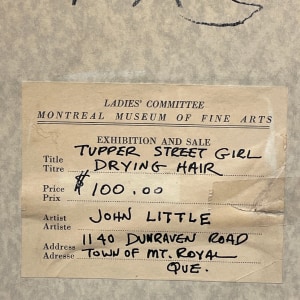 LADIES' COMMITTEE
MONTREAL MUSEUM OF FINE ARTS
EXHIBITION AND SALE
Title TUPPER STREET GIRL
Titre DRYING HAIR
Price $100.00
Prix
Artist JOHN LITTLE
Artiste
Address 1140 DUNRAVEN ROAD
Adresse TOWN OF MT. ROYAL
QUE.